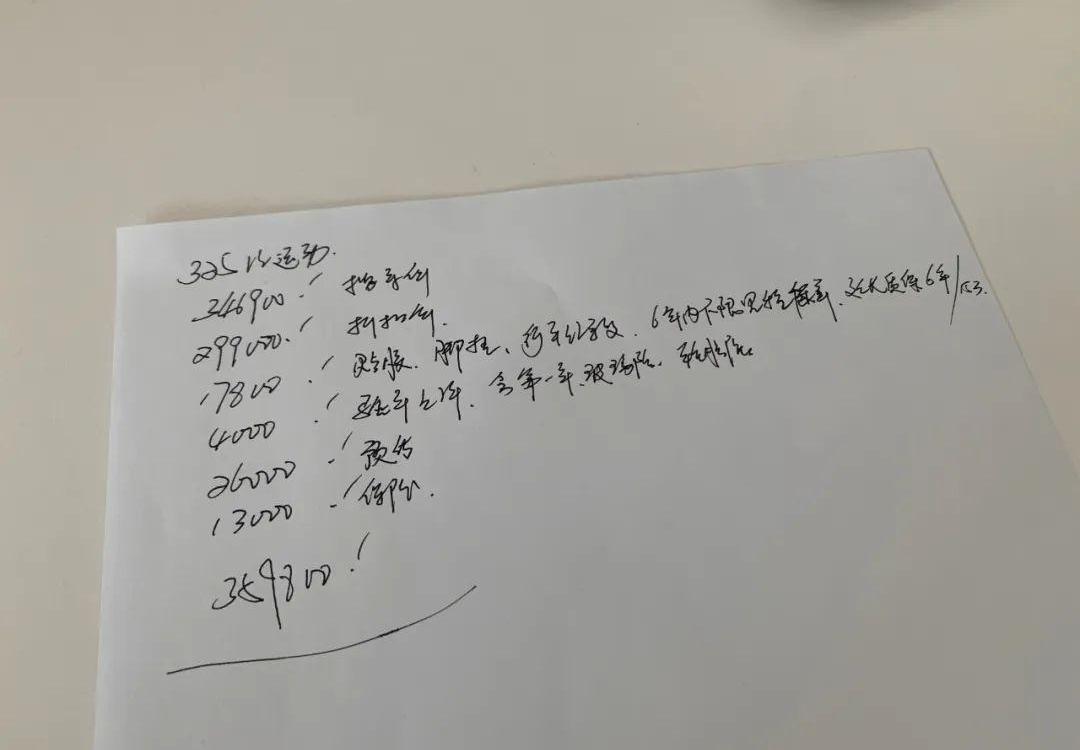 325 Li 运动.
346900.- 指导价
299000.- 折扣价.
17800.- 贴膜、脚垫、行车记录仪、6年内不限 延长质保6年/15万.
4000.- 含第一年 玻璃险、
26000.- 预估
13000.- 保险.
359800.-